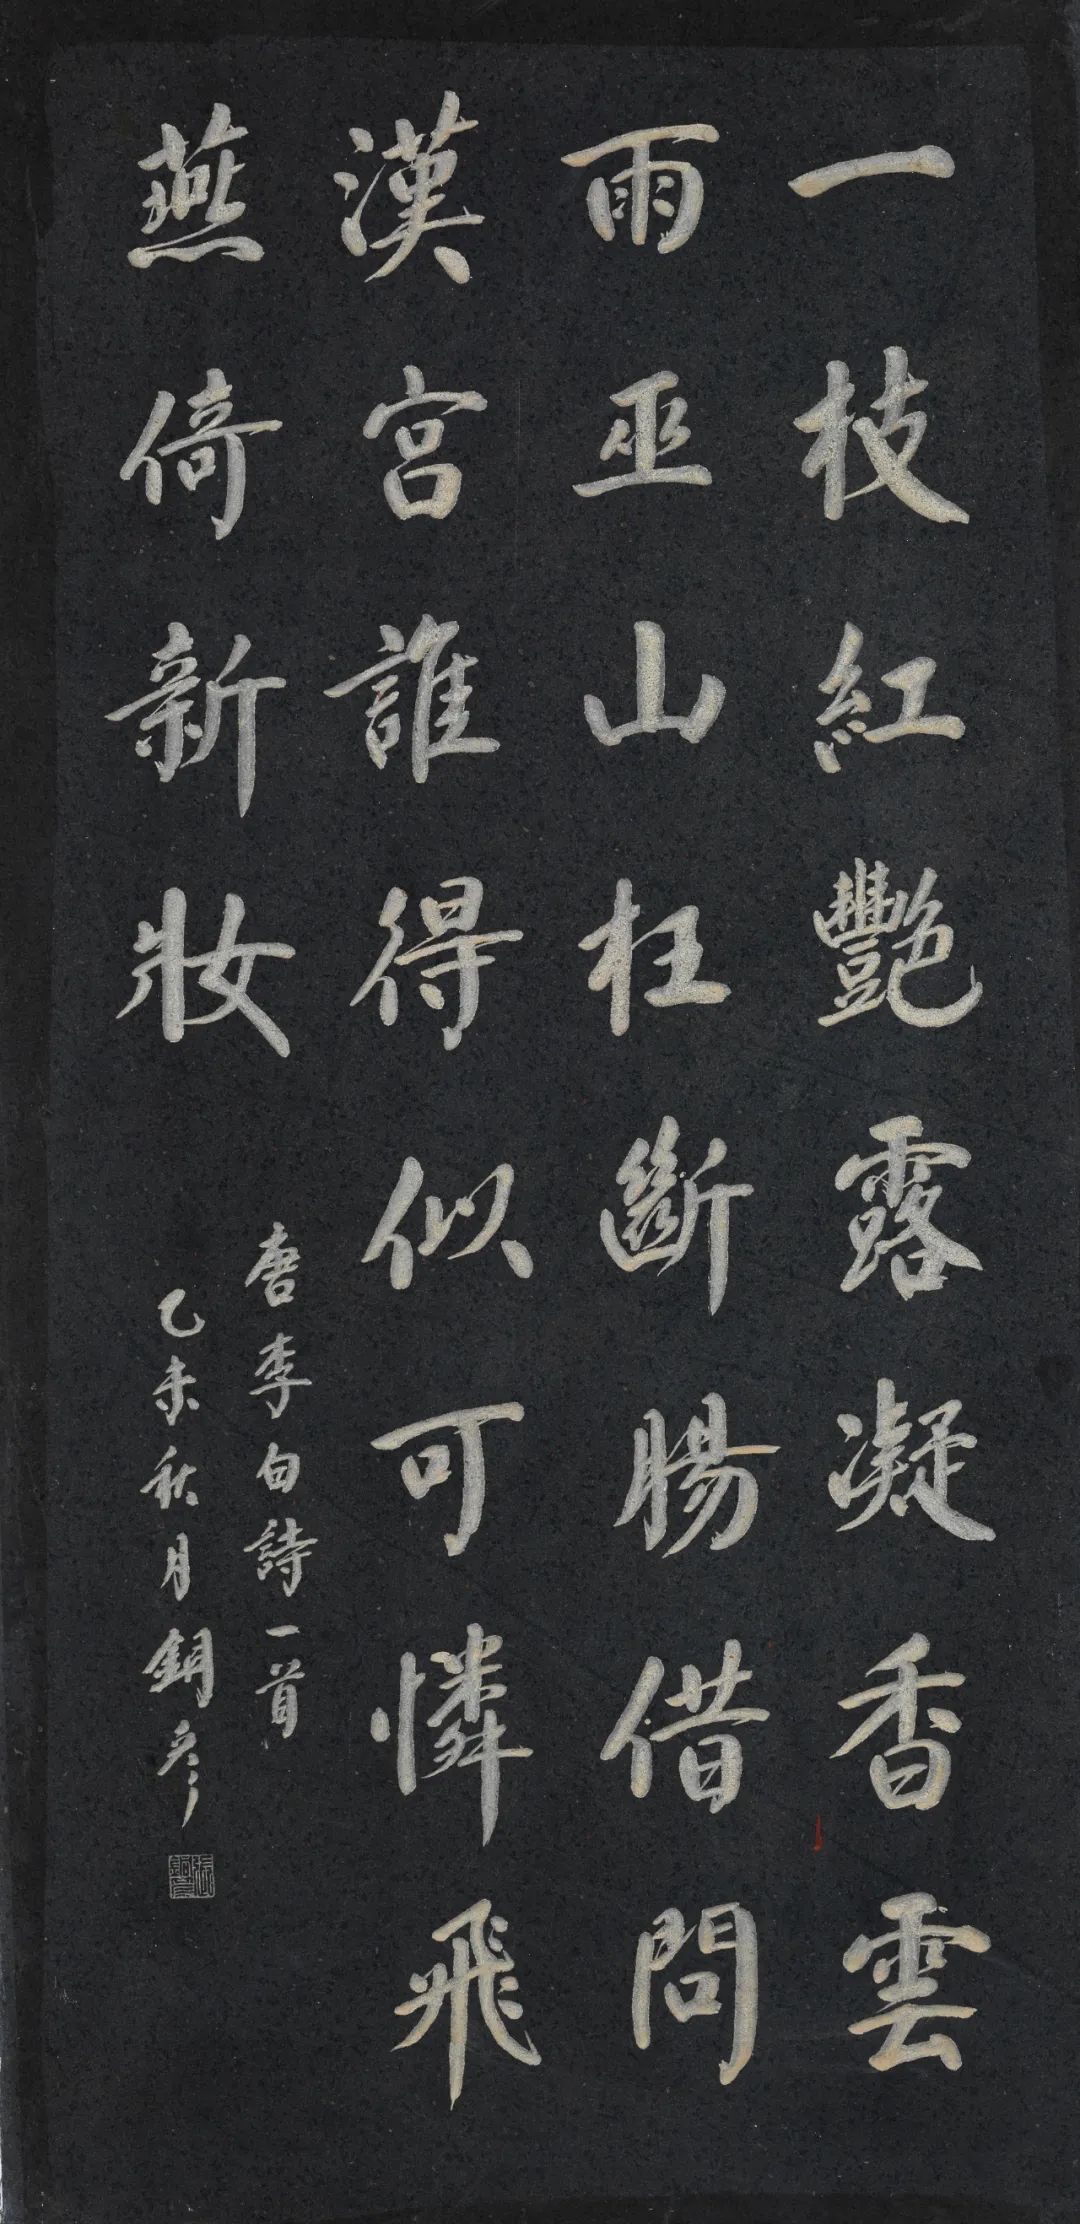 一枝紅艷露凝香雲
雨巫山枉斷腸借問
漢宮誰得似可憐飛
燕倚新妝
唐李白詩一首
乙未秋月銅彥